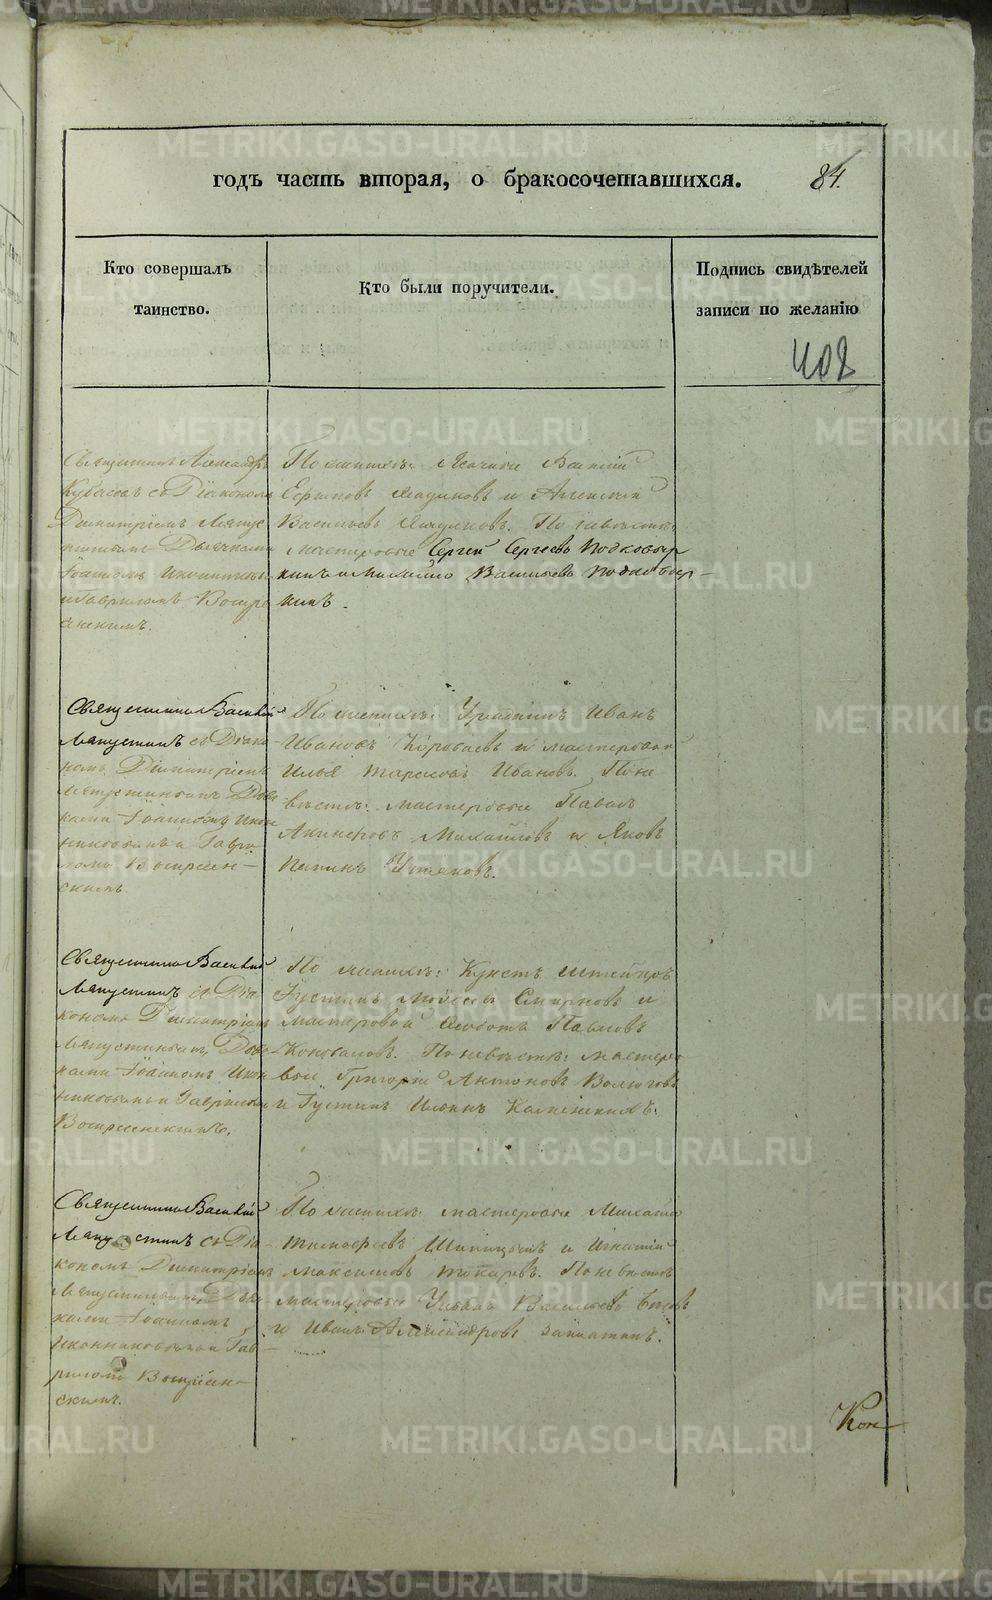 годъ часть вторая, о бракосочетавшихся.
84.
Кто совершалъ
таинство.
Кто были поручители.
Подпись свидѣтелей
записи по желанію
408
Священникъ Александръ
Кубасовъ съ Діакономъ
Димитріемъ Ляпус
тинымъ Дьячками
Іоанномъ Иконниковы
и Гавриломъ Воскре
сенскимъ.
По женихѣ: Василій
Ефимовъ и Алексѣй
Васильевъ По невѣстѣ
мастеровые Сергей Сергеевъ Подковыр
кинъ и Михайло Васильевъ Подковыр-
кинъ.
Священникъ Василій
Ляпустинъ съ Діако
номъ Димитріемъ
Ляпустинымъ Дьяч
ками Іоанномъ Икон
никовымъ и Гаври
ломъ Воскресен-
скимъ.
По женихѣ: Урядникъ Иванъ
Ивановъ Коробаевъ и мастеровой
Илья Тарасовъ Ивановъ. По не
вѣстѣ: мастеровые Павелъ
Михайловъ и Яковъ
Устюковъ.
Священникъ Василій
Ляпустинъ съ Діа
кономъ Димитріемъ
Ляпустинымъ, Дьяч
ками Іоанномъ Икон
никовымъ и Гавриломъ
Воскресенскимъ.
По женихѣ: Кунстъ штейгеръ
Густинъ Моисеевъ Смирновъ и
мастеровой Павловъ
Коноваловъ. По невѣстѣ: мастеро
вые Григорій Антоновъ Волюговъ
и Густинъ Ильинъ Каменскихъ.
Священникъ Василій
Ляпустинъ съ Діа
кономъ Димитріемъ
Ляпустинымъ, Дьяч
ками Іоанномъ
Иконниковымъ и Гав
риломъ Воскресен-
скимъ.
По женихѣ: мастеровые Михайло
Тимофеевъ Шипицынъ и Игнатій
Максимовъ Токаревъ. По невѣстѣ
мастеровые Ульянъ Васильевъ
и Иванъ Александровъ Заплатинъ.
Кон
METRIKI.GASO-URAL.RU